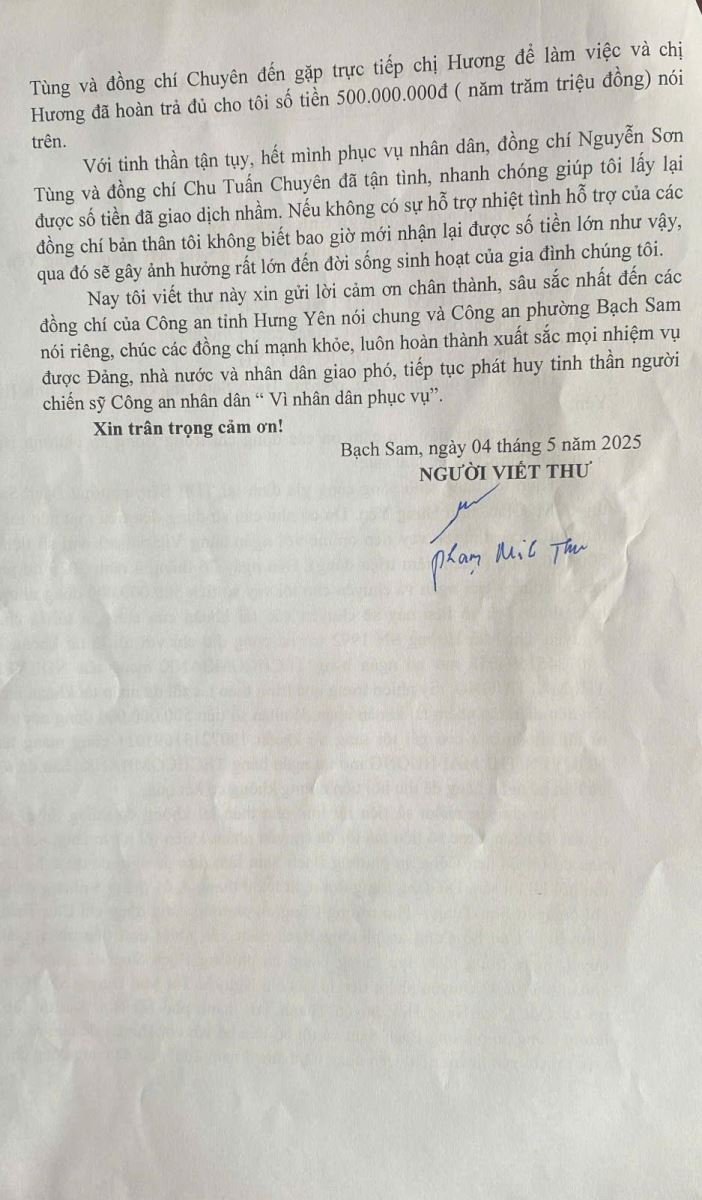 Tùng và đồng chí Chuyên đến gặp trực tiếp chị Hương để làm việc và chị
Hương đã hoàn trả đủ cho tôi số tiền 500.000.000đ ( năm trăm triệu đồng) nói
trên.
Với tinh thần tận tụy, hết mình phục vụ nhân dân, đồng chí Nguyễn Sơn
Tùng và đồng chí Chu Tuấn Chuyên đã tận tình, nhanh chóng giúp tôi lấy lại
được số tiền đã giao dịch nhầm. Nếu không có sự hỗ trợ nhiệt tình hỗ trợ của các
đồng chí bản thân tôi không biết bao giờ mới nhận lại được số tiền lớn như vậy,
qua đó sẽ gây ảnh hưởng rất lớn đến đời sống sinh hoạt của gia đình chúng tôi.
Nay tôi viết thư này xin gửi lời cảm ơn chân thành, sâu sắc nhất đến các
đồng chí của Công an tỉnh Hưng Yên nói chung và Công an phường Bạch Sam
nói riêng, chúc các đồng chí mạnh khỏe, luôn hoàn thành xuất sắc mọi nhiệm vụ
được Đảng, nhà nước và nhân dân giao phó, tiếp tục phát huy tinh thần người
chiến sỹ Công an nhân dân “ Vì nhân dân phục vụ”.
Xin trân trọng cảm ơn!
Bạch Sam, ngày 04 tháng 5 năm 2025
NGƯỜI VIẾT THƯ
Phạm Thu